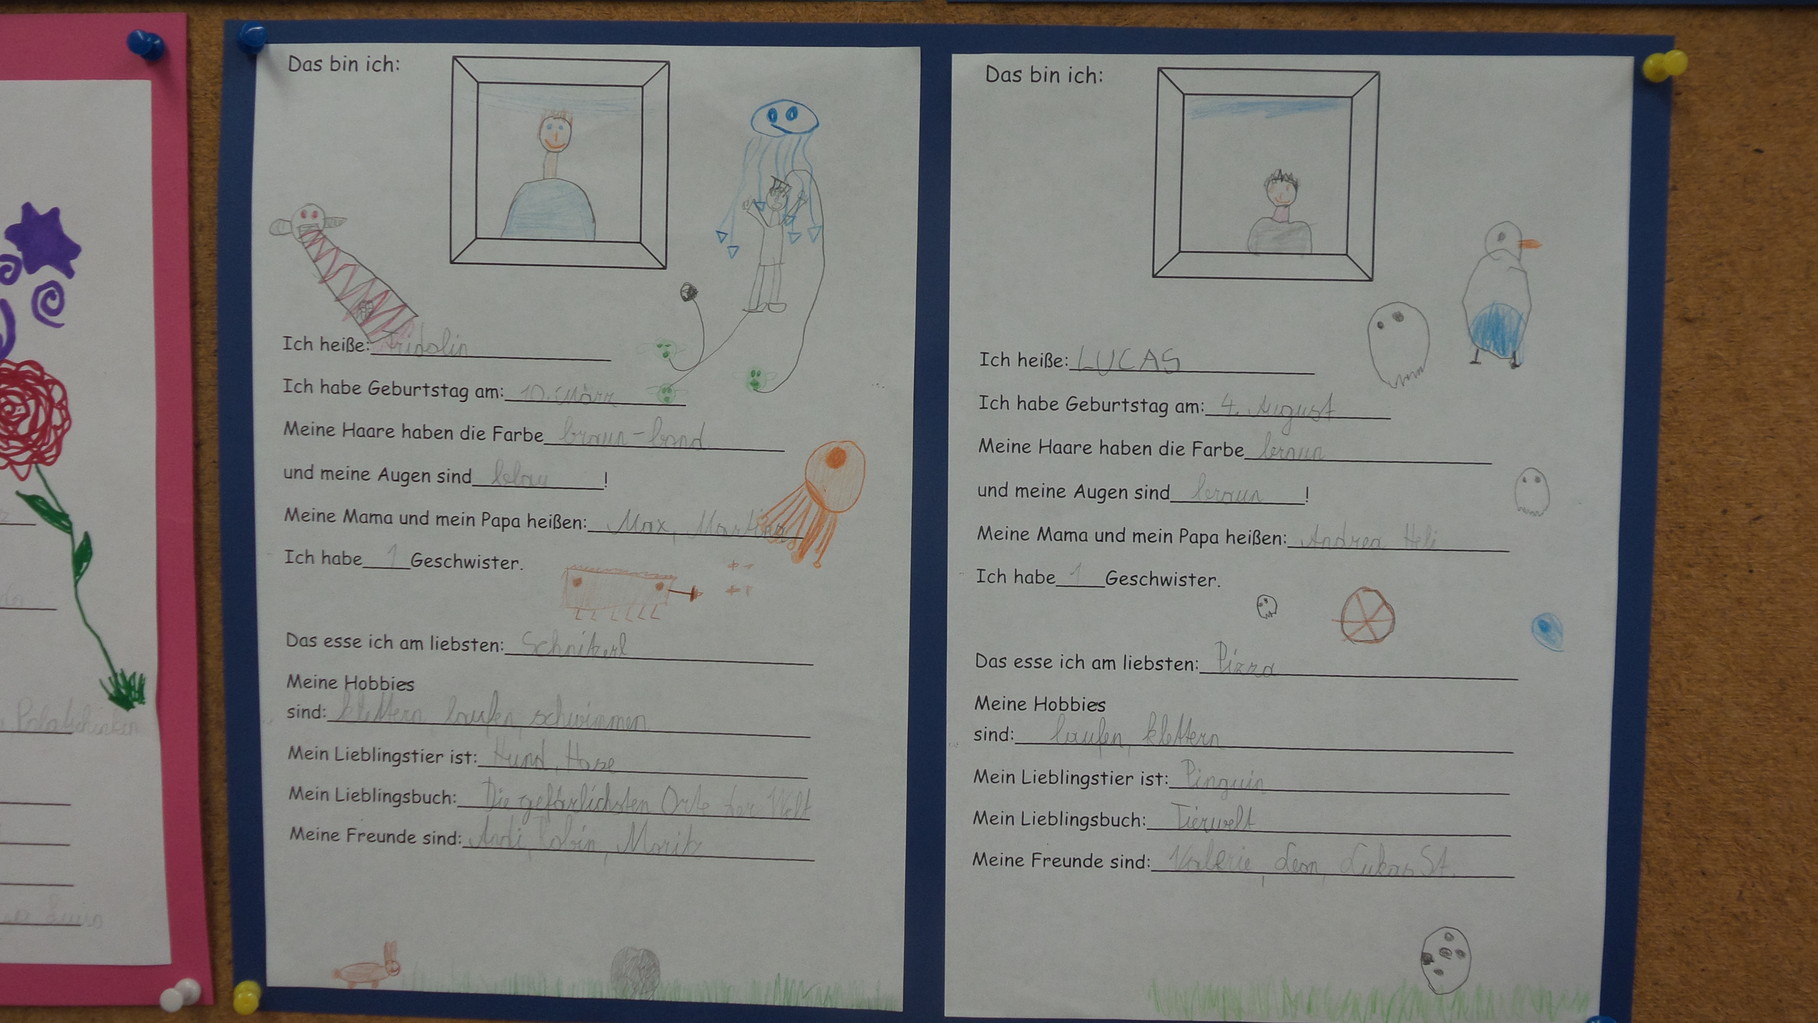 Das bin ich:
Ich heiße: Fridolin
Ich habe Geburtstag am: 10. März
Meine Haare haben die Farbe braun-
und meine Augen sind blau!
Meine Mama und mein Papa heißen: Max, Martina
Ich habe 1 Geschwister.
Das esse ich am liebsten: Schnitzerl
Meine Hobbies
sind: klettern laufen, schwimmen
Mein Lieblingstier ist: Hund, Hase
Mein Lieblingsbuch: Die gefärlichsten Orte der Welt
Meine Freunde sind: Andi, Tobin, Moritz
Das bin ich:
Ich heiße: LUCAS
Ich habe Geburtstag am: 4. August
Meine Haare haben die Farbe braun
und meine Augen sind braun!
Meine Mama und mein Papa heißen: Andrea Heli
Ich habe 1 Geschwister.
Das esse ich am liebsten: Pizza
Meine Hobbies
sind: laufen, klettern
Mein Lieblingstier ist: Pinguin
Mein Lieblingsbuch: Tierwelt
Meine Freunde sind: Valerie, Leon, Lukas St.